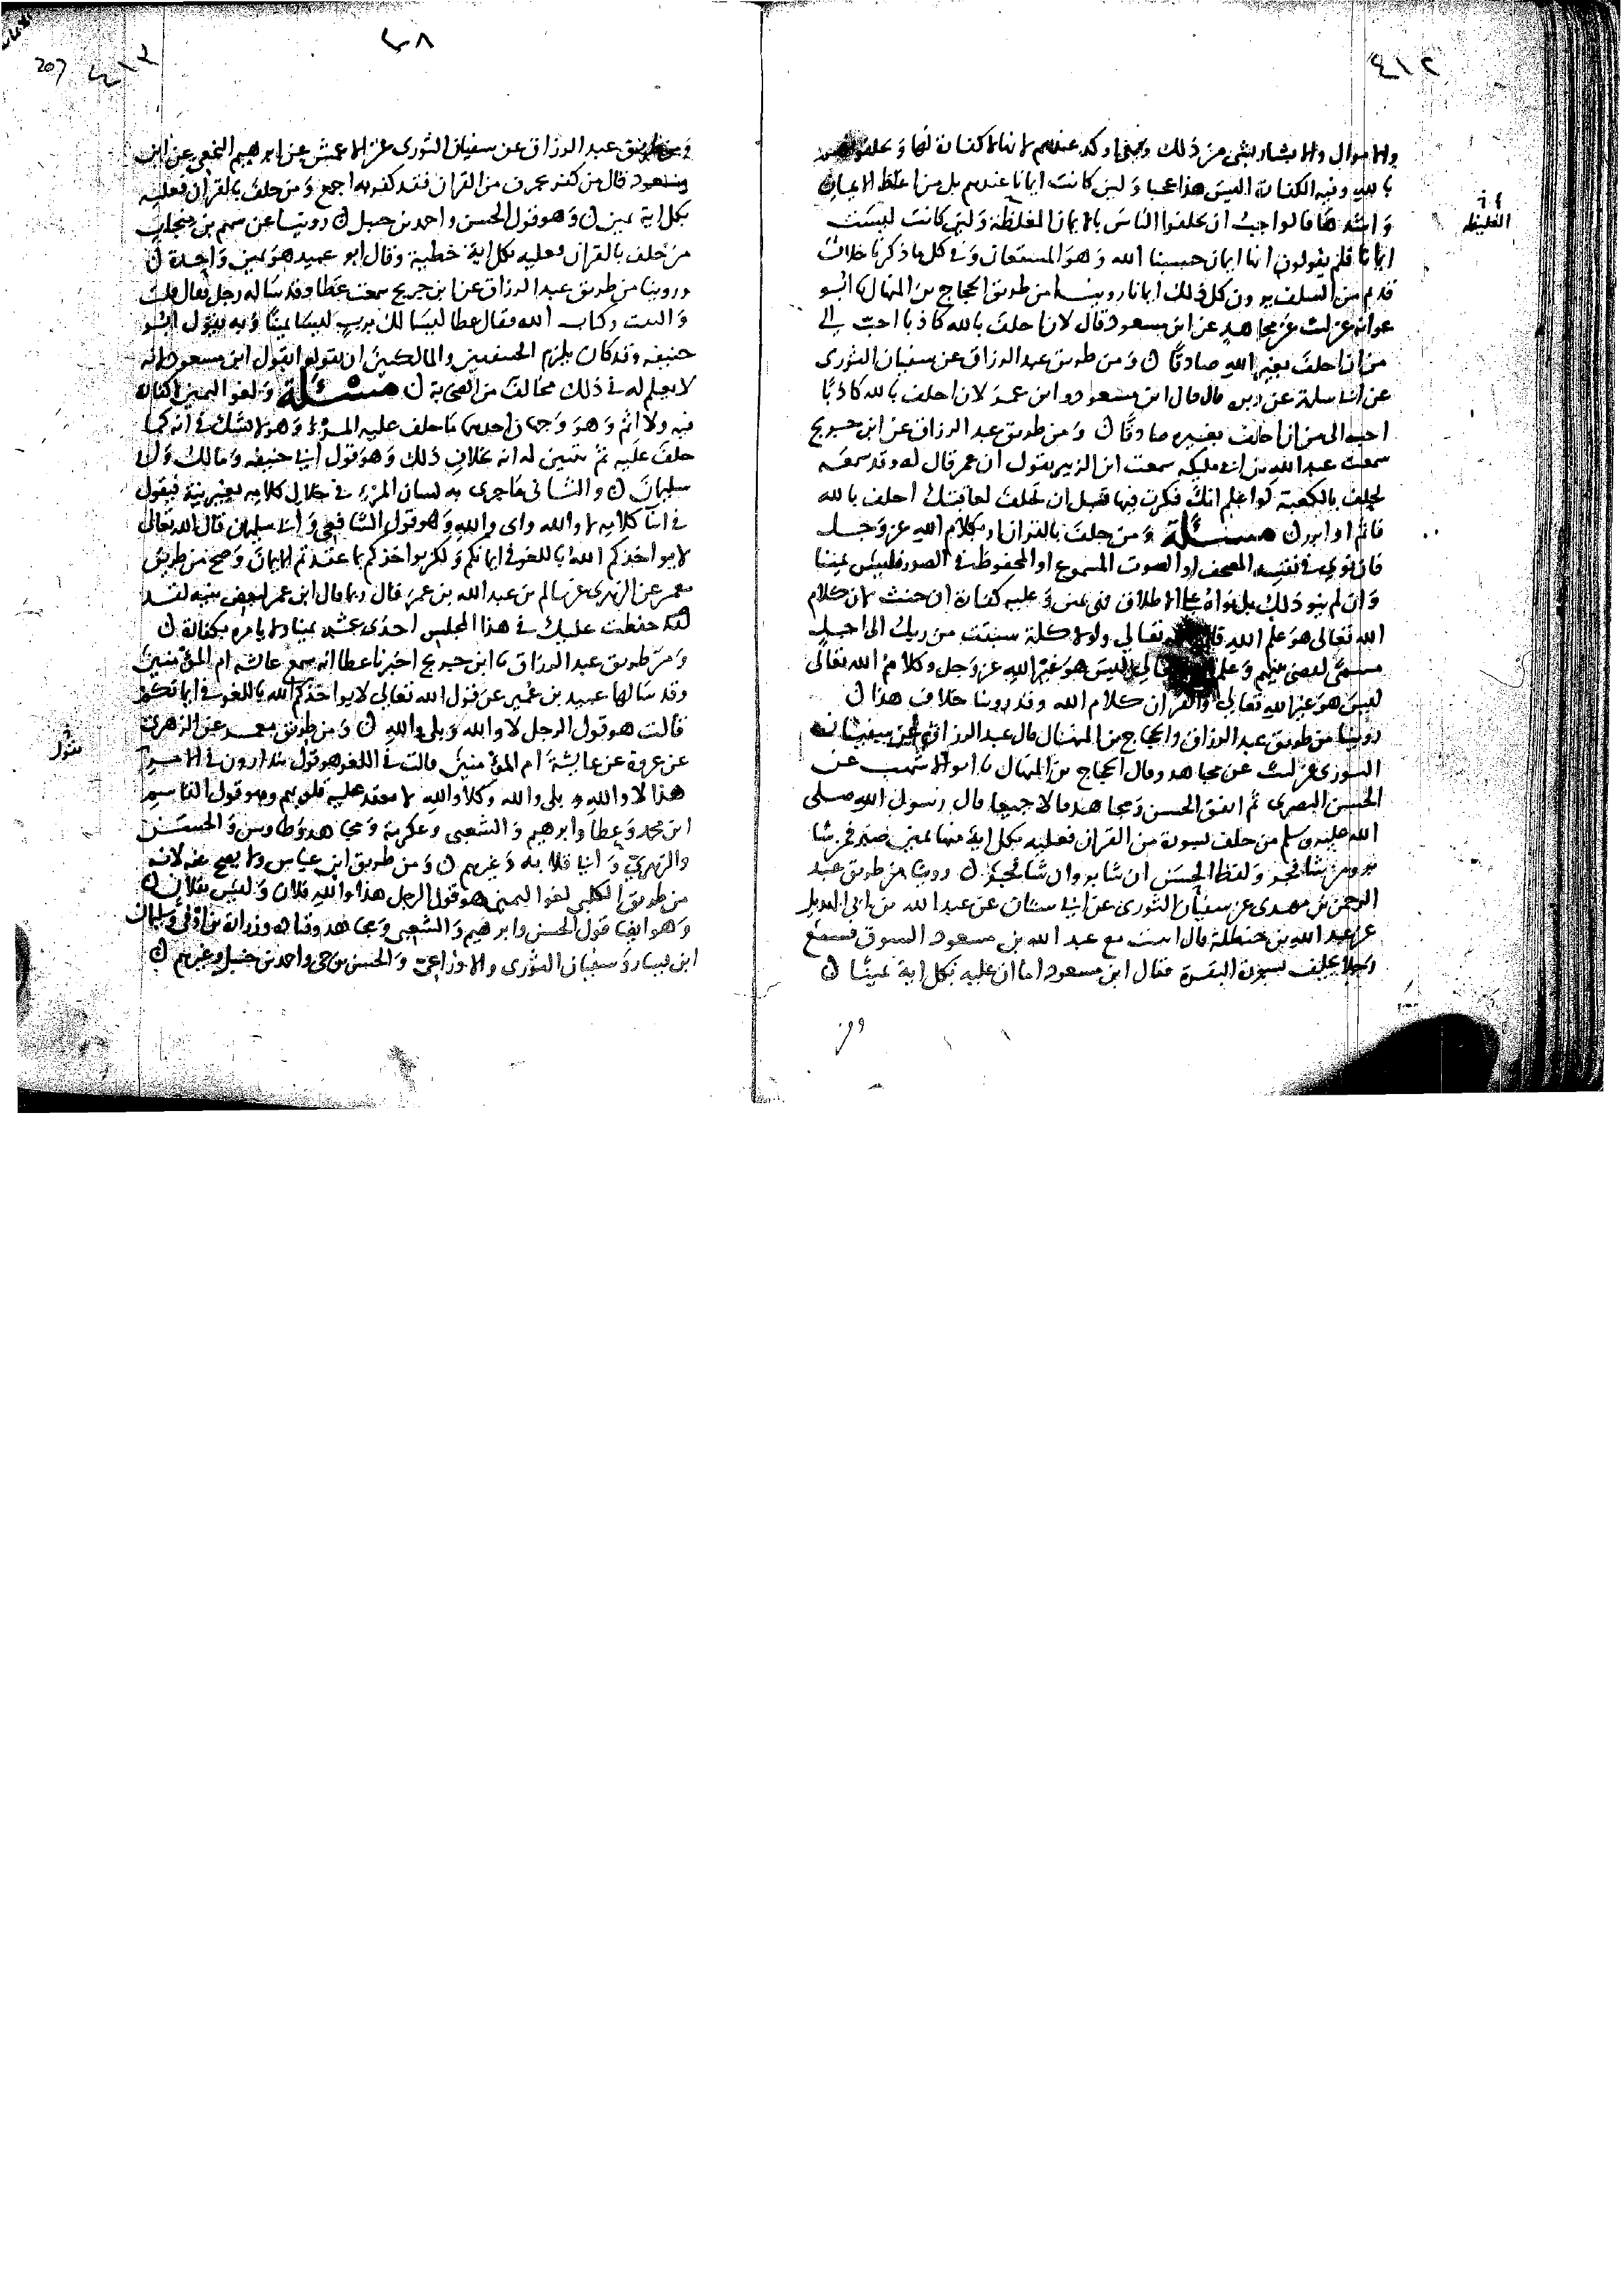 ٤١٢
والاموال والابشار بشى من ذلك وهى اوكد عندهم لانها لا كفارة لها وتحلفونهم
بالله وفيه الكفارة اليس هذا عجبا ولين كانت ايمانا عندهم بل من اغلظ الايمان
واشدها فالواجب ان تحلفوا الناس بالايمان المغلظة ولين كانت ليست
الغليظه
ايمانا فلم يقولون انها ايمان حسبنا الله وهو المستعان وفى كل ما ذكرنا خلاف
قديم من السلف يرون كل ذلك ايمانا روينا من طريق الحجاج بن المنهال نا ابو
عوانه عن ليث عن مجاهد عن ابن مسعود قال لان احلف بالله كاذبا احب الى
من ان احلف بغير الله صادقا ن ومن طريق عبد الرزاق عن سفيان الثورى
عن ابى سلمة عن وبره قال قال ابن مسعود او ابن عمر لان احلف بالله كاذبا
احب الى من ان احلف بغيره صادقا ن ومن طريق عبد الرزاق عن ابن جريج
سمعت عبد الله بن ابى مليكه سمعت ابن الزبير يقول ان عمر قال له وقد سمعه
يحلف بالكعبة لو اعلم انك فكرت فيها قبل ان تحلف لعاقبتك احلف بالله
فاثم او ابرر ن مسئلة ومن حلف بالقران او بكلام الله عز وجل
فان نوى فى نفسه المصحف او الصوت المسموع او المحفوظ فى الصدور فليس يمينا
وان لم ينو ذلك بل نواه على الاطلاق فهى يمين وعليه كفارة ان حنث لان كلام
الله تعالى هو علم الله قال تعالى ولولا كلمة سبقت من ربك الى اجل
مسمى لقضى بينهم وعلم تعالى ليس هو غير الله عز وجل وكلام الله تعالى
ليس هو غير الله تعالى والقران كلام الله وقد روينا خلاف هذا ن
روينا من طريق عبد الرزاق والحجاج بن المنهال قال عبد الرزاق عن سفيان
الثورى عن ليث عن مجاهد وقال الحجاج بن المنهال نا ابو الاشهب عن
الحسن البصرى ثم اتفق الحسن ومجاهد قالا جميعا قال رسول الله صلى
الله عليه وسلم من حلف بسورة من القران فعليه بكل اية منها يمين صبر فمن شا
بر ومن شا فجر ولفظ الحسن ان شا بر وان شا فجر ن روينا من طريق عبد
الرحمن بن مهدى عن سفيان الثورى عن ابى سنان عن عبد الله بن ابى الهذيل
عن عبد الله بن حنظلة قال اتيت مع عبد الله بن مسعود السوق فسمع
رجلا يحلف بسورة البقرة فقال ابن مسعود اما ان عليه بكل اية يمينا ن
ومن
٤١٢
207
ومن طريق عبد الرزاق عن سفيان الثورى عن الاعمش عن ابرهيم النخعى عن ابن
مسعود قال من كفر بحرف من القران فقد كفر به اجمع ومن حلف بالقران فعليه
بكل اية يمين ن وهو قول الحسن واحمد بن حنبل ن روينا عن سهم بن منجاب
من حلف بالقران فعليه بكل اية خطية وقال ابو عبيد هو يمين واحدة ن
وروينا من طريق عبد الرزاق عن ابن جريج سمعت عطا وقد ساله رجل فقال قلت
والبيت وكتاب الله فقال عطا ليسا لك برب ليسا يمينا وبه يقول ابو
حنيفه وقد كان يلزم الحنفيين والمالكيين ان يقولوا بقول ابن مسعود لانه
لا يعلم له فى ذلك مخالف من الصحابة ن مسئلة ولغو اليمين لا كفارة
فيه ولا اثم وهو وجهان احدهما ما حلف عليه المرؤ وهو لا يشك فى انه كما
حلف عليه ثم تبين له انه بخلاف ذلك وهو قول ابى حنيفه ومالك وابى
سليمان ن والثانى ما جرى به لسان المرؤ فى خلال كلامه بغير نية فيقول
فى اثنا كلامه لا والله واى والله وهو قول الشافعى وابى سليمان قال الله تعالى
لا يواخذكم الله باللغو فى ايمانكم ولكن يواخذكم بما عقدتم الايمان وصح من طريق
معمر عن الزهرى عن سالم بن عبد الله بن عمر قال ربما قال ابن عمر لبعض بنيه لقد
حفظت عليك فى هذا المجلس احدى عشر يمينا ولا يامره بكفارة ن
ومن طريق عبد الرزاق نا ابن جريج اخبرنا عطا انه سمع عائشه ام المؤمنين
وقد سالها عبيد بن عمير عن قول الله تعالى لا يواخذكم الله باللغو فى ايمانكم
قالت هو قول الرجل لا والله وبلى والله ن ومن طريق معمر عن الزهرى
عن عروة عن عايشة ام المؤمنين قالت فى اللغو هو قول يتدارون فى الامر
يقول
هذا لا والله وبلى والله وكلا والله لا تعقد عليه قلوبهم وهو قول القاسم
ابن محمد وعطا وابرهيم والشعبى وعكرمة ومجاهد وطاوس والحسن
والزهرى وابى قلابه وغيرهم ن ومن طريق ابن عباس ولا يصح عنه لانه
من طريق الكلبى لغو اليمين هو قول الرجل هذا والله فلان وليس بفلان ن
وهو ايضا قول الحسن وابرهيم والشعبى ومجاهد وقتاده وزرارة بن اوفى وسليمان
ابن يسار وسفيان الثورى والاوزاعى والحسن بن حى واحمد بن حنبل وغيرهم ن